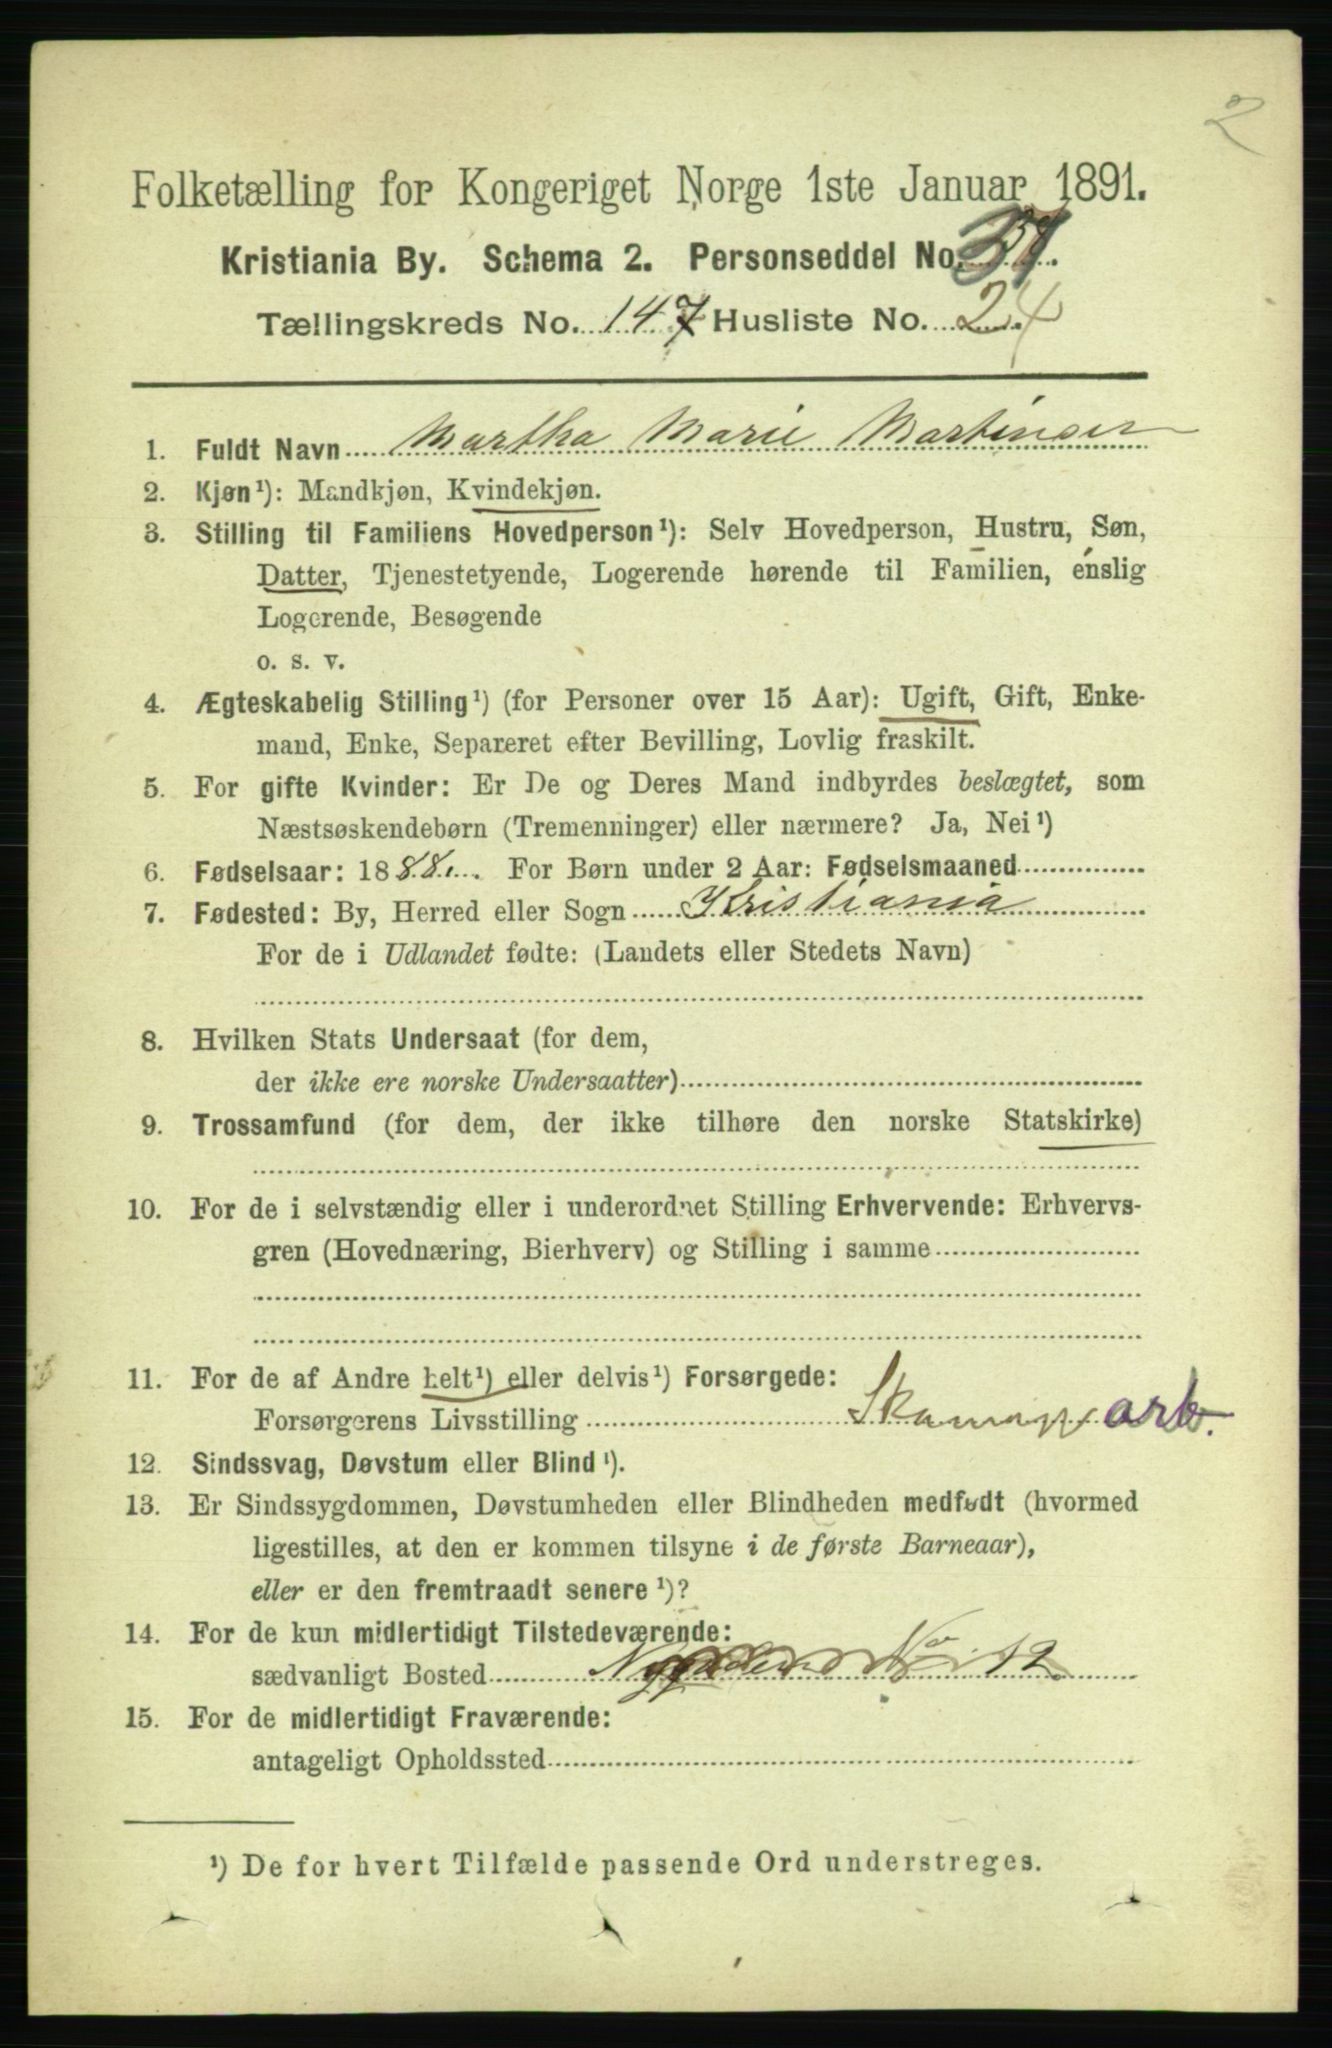 2
Folketælling for Kongeriget Norge 1ste Januar 1891.
Kristiania By. Schema 2. Personseddel No.
Tællingskreds No. 147 Husliste No. 24
1. Fuldt Navn Martha Marie Martinsen
2. Kjøn¹): Mandkjøn, Kvindekjøn.
3. Stilling til Familiens Hovedperson¹): Selv Hovedperson, Hustru, Søn,
Datter, Tjenestetyende, Logerende hørende til Familien, enslig
Logerende, Besøgende
o. s. v.
4. Ægteskabelig Stilling¹) (for Personer over 15 Aar): Ugift, Gift, Enke-
mand, Enke, Separeret efter Bevilling, Lovlig fraskilt.
5. For gifte Kvinder: Er De og Deres Mand indbyrdes beslægtet, som
Næstsøskendebørn (Tremenninger) eller nærmere? Ja, Nei¹)
6. Fødselsaar: 1888. For Børn under 2 Aar: Fødselsmaaned
7. Fødested: By, Herred eller Sogn Kristiania
For de i Udlandet fødte: (Landets eller Stedets Navn)
8. Hvilken Stats Undersaat (for dem,
der ikke ere norske Undersaatter)
9. Trossamfund (for dem, der ikke tilhøre den norske Statskirke)
10. For de i selvstændig eller i underordnet Stilling Erhvervende: Erhvervs-
gren (Hovednæring, Bierhverv) og Stilling i samme
11. For de af Andre helt¹) eller delvis¹) Forsørgede:
Forsørgerens Livsstilling arb.
12. Sindssvag, Døvstum eller Blind¹).
13. Er Sindssygdommen, Døvstumheden eller Blindheden medfødt (hvormed
ligestilles, at den er kommen tilsyne i de første Barneaar),
eller er den fremtraadt senere¹)?
14. For de kun midlertidigt Tilstedeværende:
sædvanligt Bosted No 12
15. For de midlertidigt Fraværende:
antageligt Opholdssted
¹) De for hvert Tilfælde passende Ord understreges.